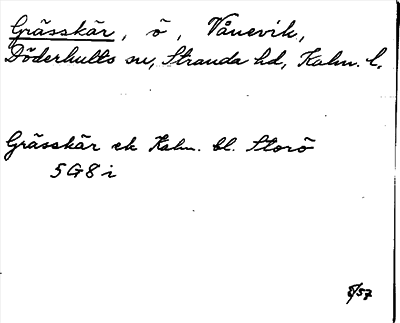 Grässkär, ö, Vånevik,
Döderhults sn, Stranda hd, Kalm. l.
Grässkär ek Kalm. bl. Storö
5G8i
8/57